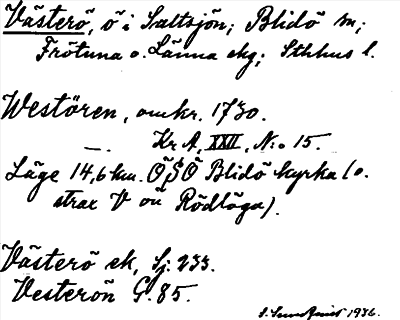 Västerö, ö i Saltsjön; Blidö sn;
Frötuna o. Länna skg; Sthlms l.
Westören, omkr. 1730.
— . Kr A, XXII, N:o 15.
Läge 14,6 km. ÖSÖ Blidö kyrka (o.
strax V om Rödlöga).
Västerö ek, Sj. 233.
Vesterön G. 85.
1936.